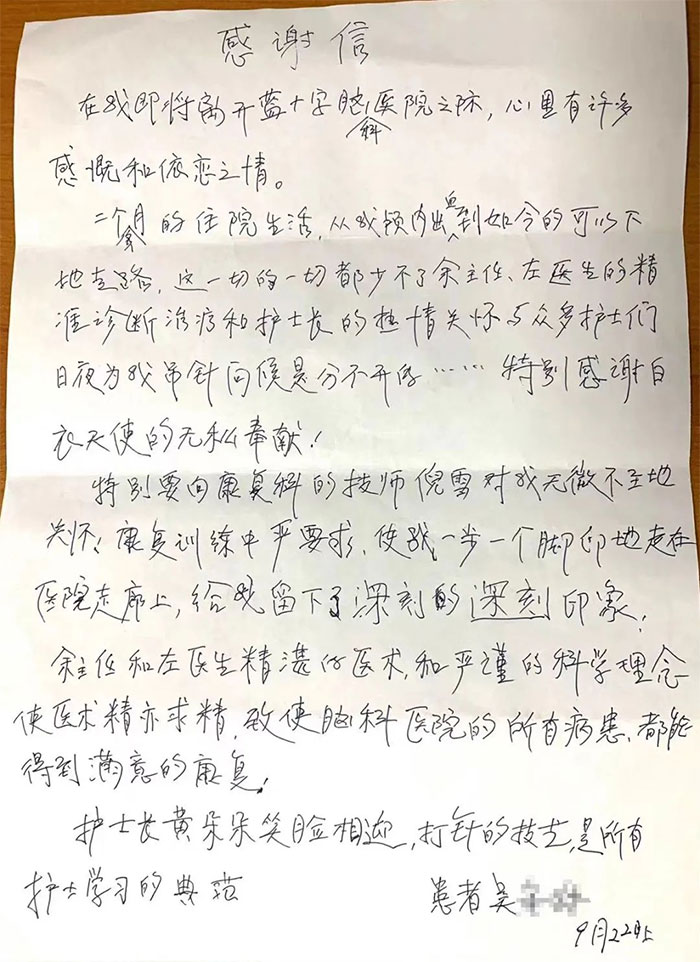 感谢信
在我即将离开蓝十字脑科医院之际，心里有许多
感慨和依恋之情。
二个月的住院生活，从我颅内出血到如今的可以下
地走路，这一切的一切都少不了余主任、左医生的精
准诊断治疗和护士长的热情关怀与众多护士们
日夜为我吊针问候是分不开的……特别感谢白
衣天使的无私奉献！
特别要向康复科的技师倪雪对我无微不至地
关怀！康复训练中严要求，使我一步一个脚印地走在
医院走廊上，给我留下了深刻的深刻印象！
余主任和左医生精湛的医术，和严谨的科学理念
使医术精亦求精，致使脑科医院的所有病患、都能
得到满意的康复！
护士长黄朵朵笑脸相迎，打针的技艺，是所有
护士学习的典范
患者吴
9月22日上